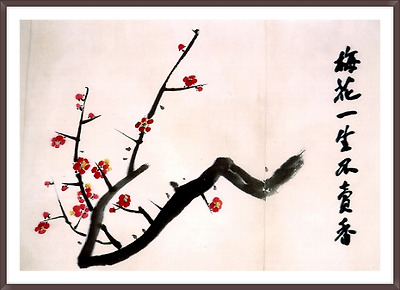 梅花一生不賣香